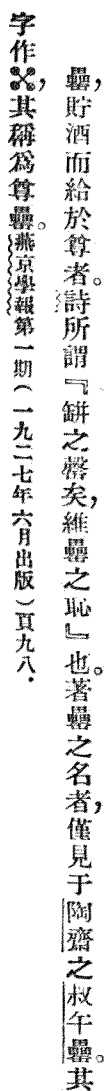 罍，貯酒而給於尊者。詩所謂『缾之罄矣，維罍之恥』也。著罍之名者，僅見于陶齋之叔午罍。其
字作，其稱爲尊罍。燕京學報第一期（一九二七年六月出版）頁九八．